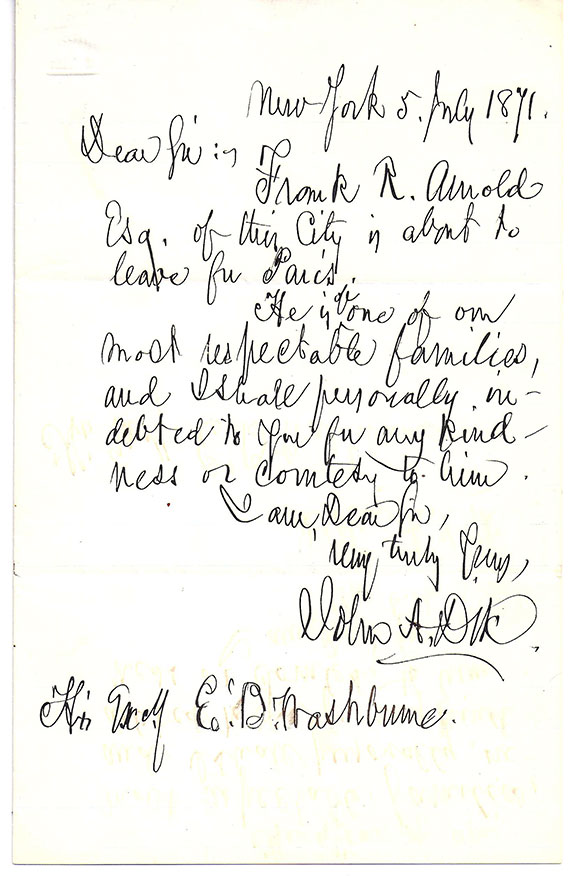 New York 5. July 1871.
Dear Sir:
Frank R. Arnold
Esq. of this City is about to
leave for Paris.
He is of one of our
most respectable families,
and I shall personally in-
debted to you for any kind-
ness or courtesy to him.
I am, Dear Sir,
very truly Yours,
John A. Dix.
His Excy E. B. Washburne.